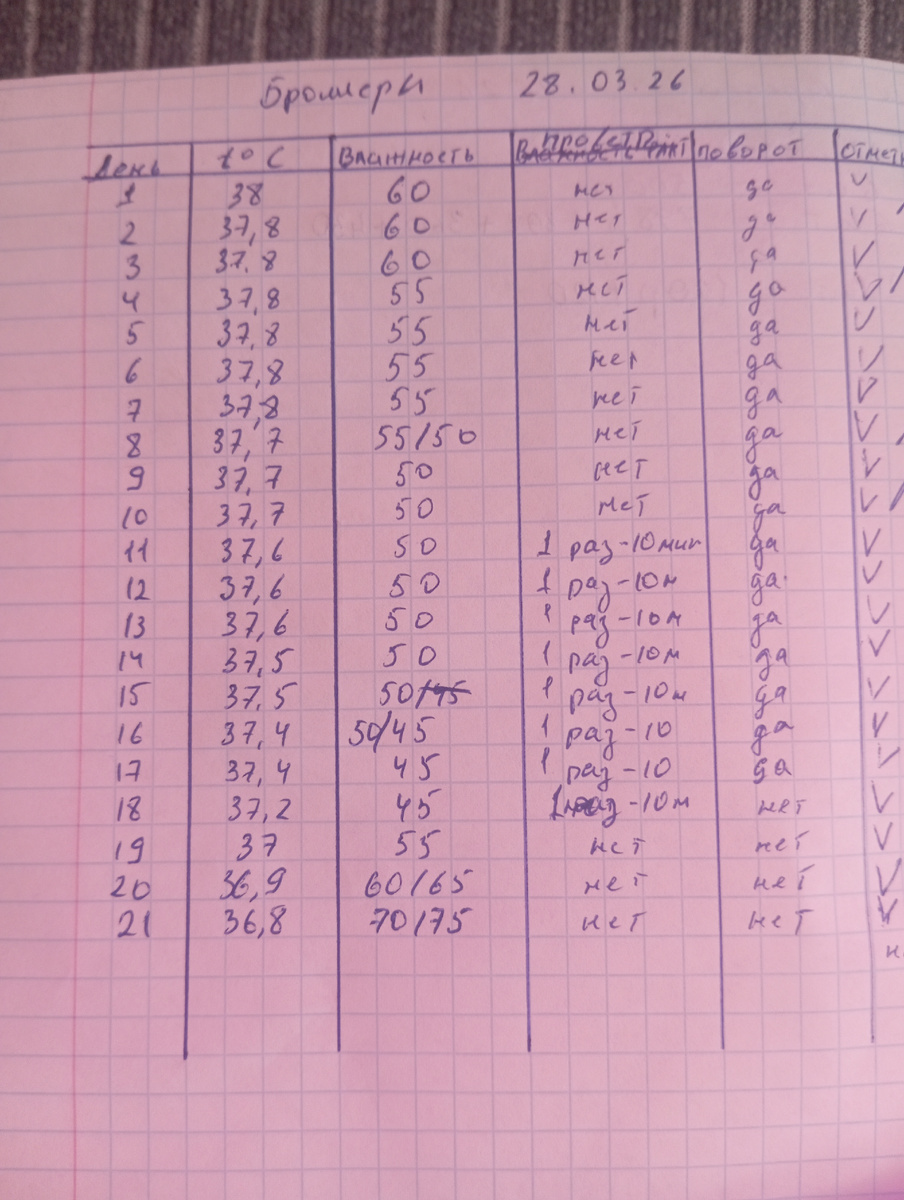 Бройлеры 28.03.26
День t°C Влажность Проветр. поворот отмет
1 38 60 нет да ✓
2 37,8 60 нет да ✓
3 37.8 60 нет да ✓
4 37,8 55 нет да ✓
5 37,8 55 нет да ✓
6 37,8 55 нет да ✓
7 37,8 55 нет да ✓
8 37,7 55/50 нет да ✓
9 37,7 50 нет да ✓
10 37,7 50 нет да ✓
11 37,6 50 1 раз-10мин да ✓
12 37,6 50 1 раз-10м да ✓
13 37,6 50 1 раз-10м да ✓
14 37,5 50 1 раз-10м да ✓
15 37,5 50/45 1 раз-10м да ✓
16 37,4 50/45 1 раз-10 да ✓
17 37,4 45 1 раз-10 да ✓
18 37,2 45 1 раз-10м нет ✓
19 37 55 нет нет ✓
20 36,9 60/65 нет нет ✓
21 36,8 70/75 нет нет ✓